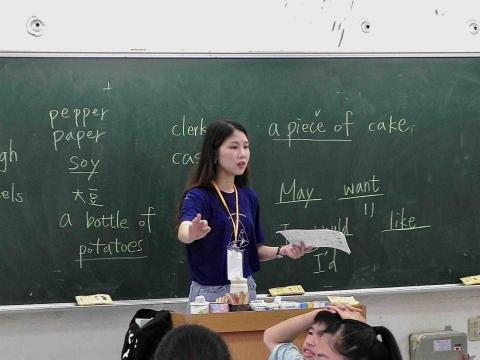 pepper
paper
soy
大豆
els
a bottle of
potatoes
clerk
cas
a piece of cake.
May want
like
I'd